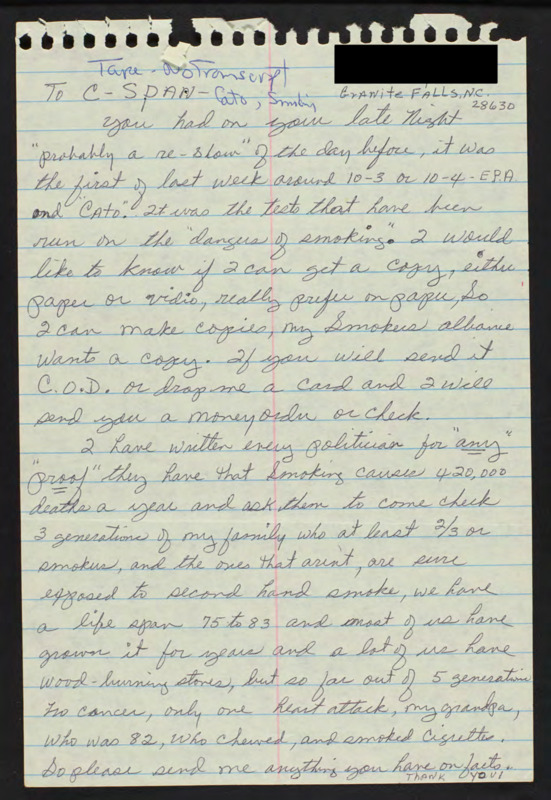 Tape - No Transcript
TO C-SPAN - Cato, Smoking
GRANITE FALLS, N.C.
28630
you had on your late Night
"probably a re-show" of the day before, it was
the first of last week around 10-3 or 10-4 - E.P.A.
and "CATO". It was the tests that have been
run on the "dangers of smoking". I would
like to know if I can get a copy, either
paper or vidio, really prefer on paper, So
I can make copies, my Smokers alliance
wants a copy. If you will send it
C.O.D. or drop me a card and I will
send you a money order or check.
I have written every politician for "any"
"proof" they have that Smoking causes 420,000
deaths a year and ask them to come check
3 generations of my family who at least 2/3 or
smokers, and the ones that arin't, are sure
exposed to second hand smoke, we have
a life span 75 to 83 and most of us have
grown it for years and a lot of us have
wood-burning stoves, but so far out of 5 generation
no cancer, only one heart attack, my grandpa,
who was 82, who chewed, and smoked Cigretts.
So please send me anything you have on facts.
THANK YOU!